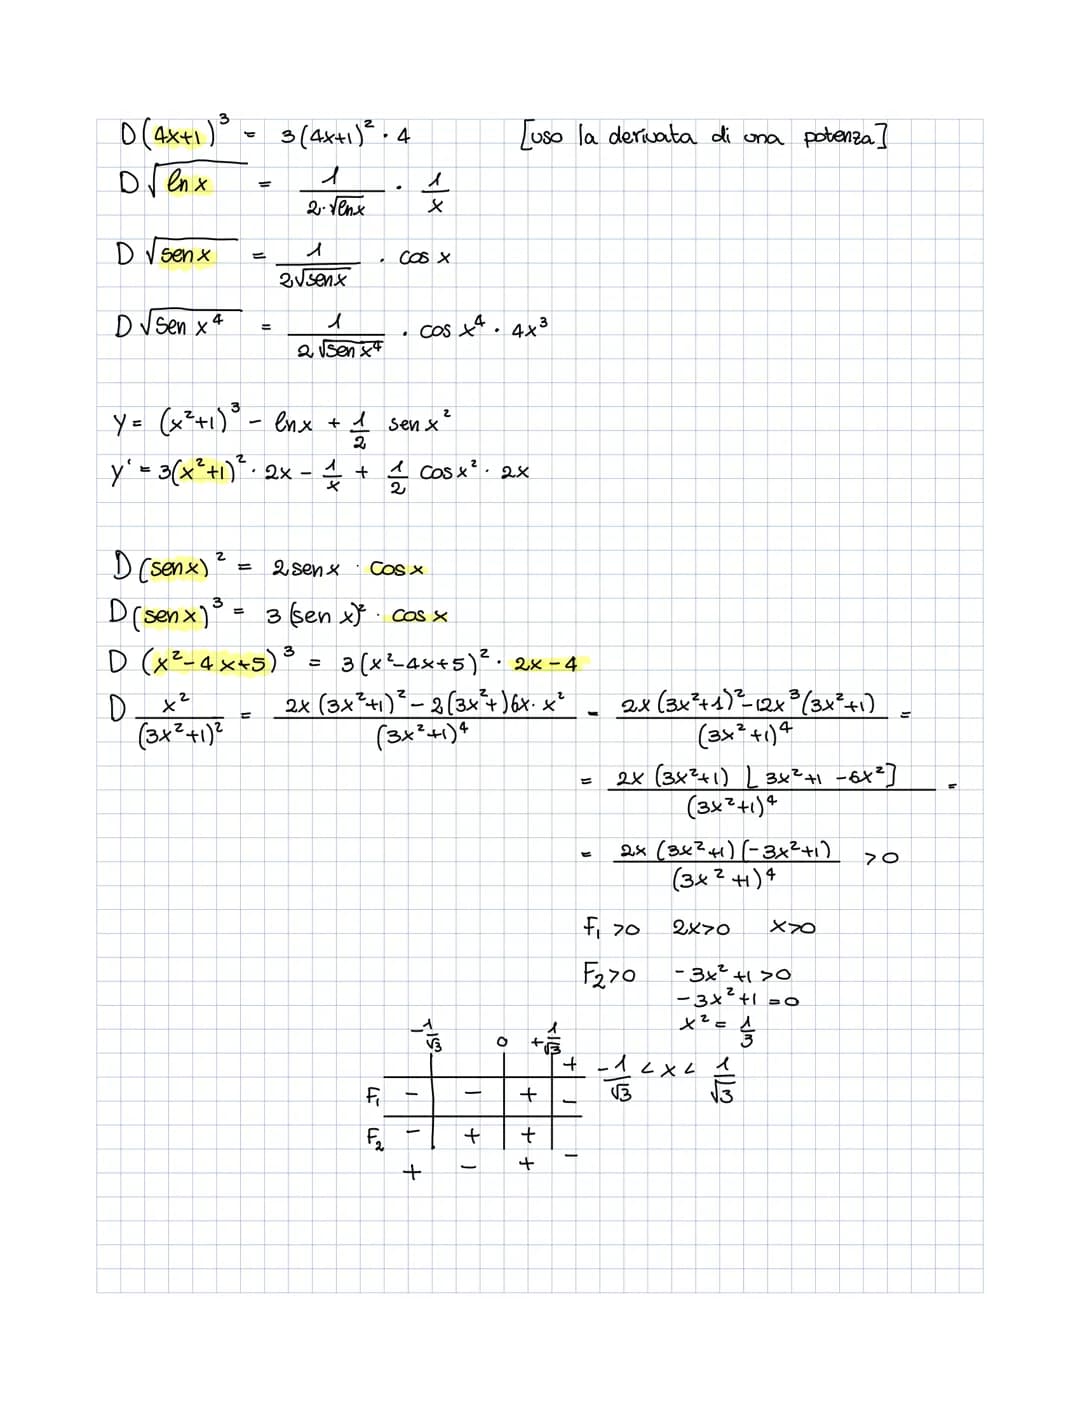 D(4x+1)³ = 3(4x+1)² · 4 [uso la derivata di una potenza]
D√ln x = 1/(2·√lnx) · 1/x
D √senx = 1/(2√senx) · cos x
D√sen x⁴ = 1/(2√sen x⁴) · cos x⁴ · 4x³
y = (x²+1)³ - lnx + 1/2 sen x²
y' = 3(x²+1)² · 2x - 1/x + 1/2 cos x² · 2x
D(senx)² = 2senx · cosx
D(senx)³ = 3(sen x)² · cos x
D (x²-4x+5)³ = 3(x²-4x+5)² · 2x-4
D x²/(3x²+1)² = (2x(3x²+1)² - 2(3x²+)6x·x²)/(3x²+1)⁴ = (2x(3x²+1)²-12x³(3x²+1))/(3x²+1)⁴ =
= 2x(3x²+1)[3x²+1-6x²]/(3x²+1)⁴ =
= 2x(3x²+1)(-3x²+1)/(3x²+1)⁴ >0
F₁>0 2x>0 x>0
F₂>0 -3x²+1>0
-3x²+1=0
x² = 1/3
-1/√3 0 +1/√3
+ -1/√3 < x < 1/√3
F₁ - - + -
F₂ - + +
+ - + -